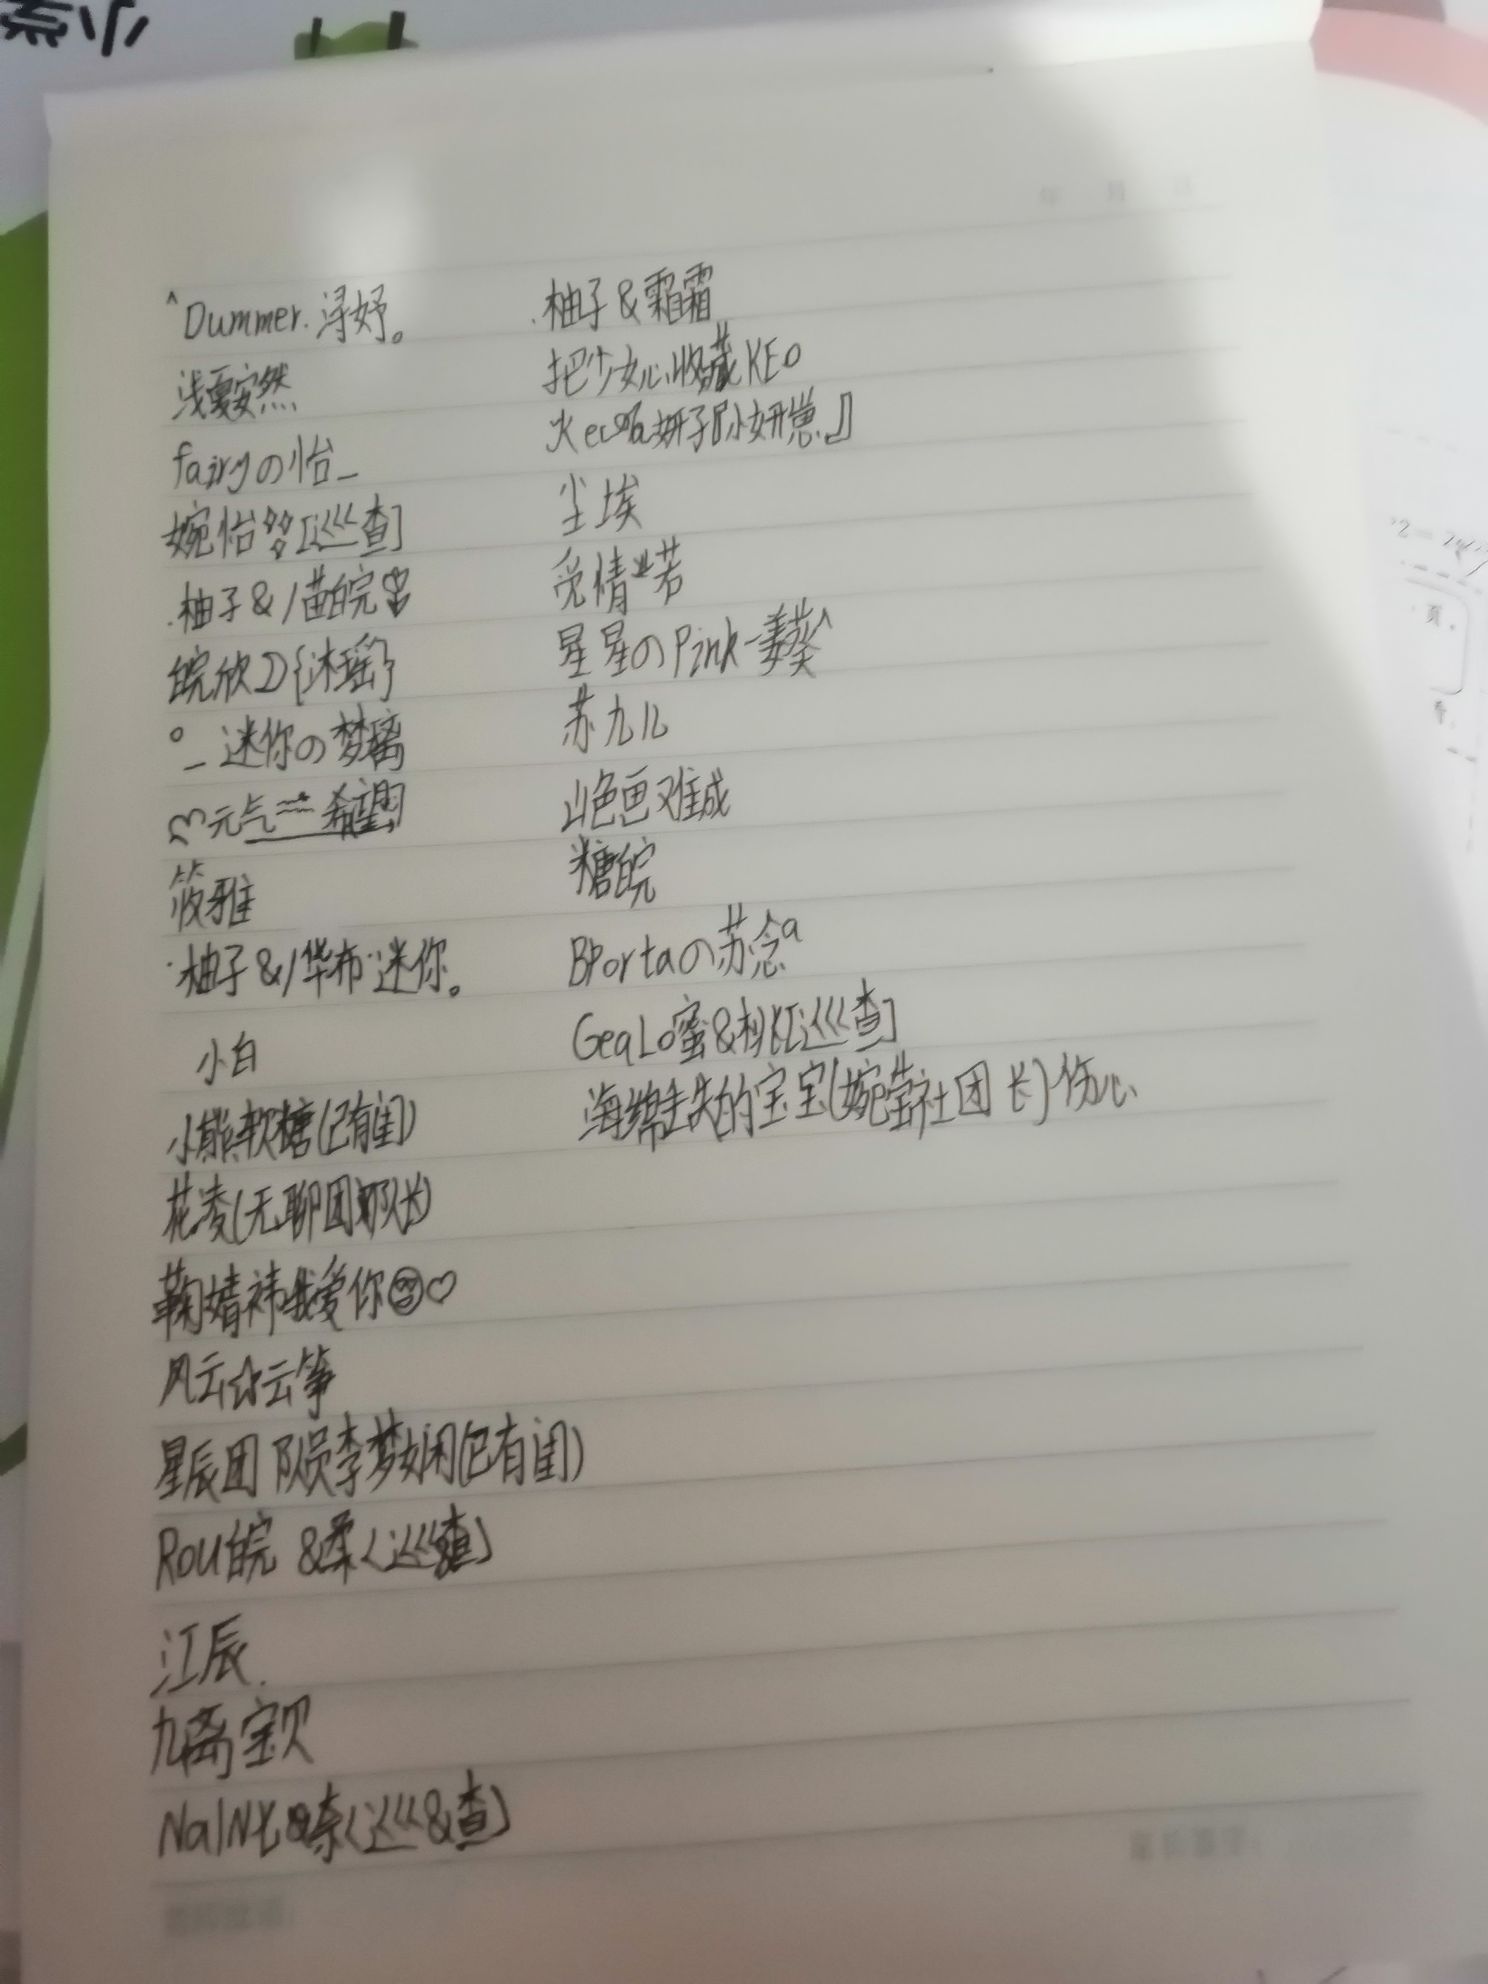 ^Dummer.浔妤。
浅夏安然
fairyの怡_
婉怡[巡查]
.柚子&/苗皖
皖欣D{沐瑶}
°_迷你の梦璃
元气二希望
筱雅
·柚子&/华布·迷你。
小白
小熊软糖(已有闺)
花凌(无聊团队长)
鞠婧祎我爱你♡
风云☆云筝
星辰团队员李梦娴(已有闺)
Rou皖 &柔<巡&查]
江辰.
九离宝贝
&奈<巡&查]
.柚子&霜霜
把少女心收藏KEO
妍子『小妍崽』
尘埃
觅情若
星星のPink-姜葵^
苏九儿
山色画难成
糖皖
BPortaの苏念a
GeaLo蜜&桃[巡查]
海绵丢失的宝宝(婉莹社团长)伤心